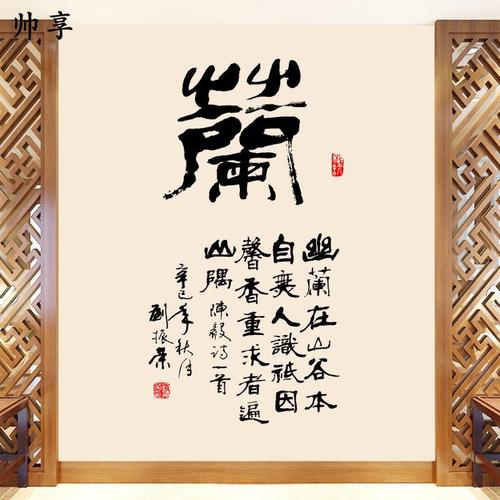 帅享
蘭
幽蘭在山谷本
自無人識祗因
馨香重求者遍
山隅 陳毅诗一首
辛巳年秋月
劉振榮